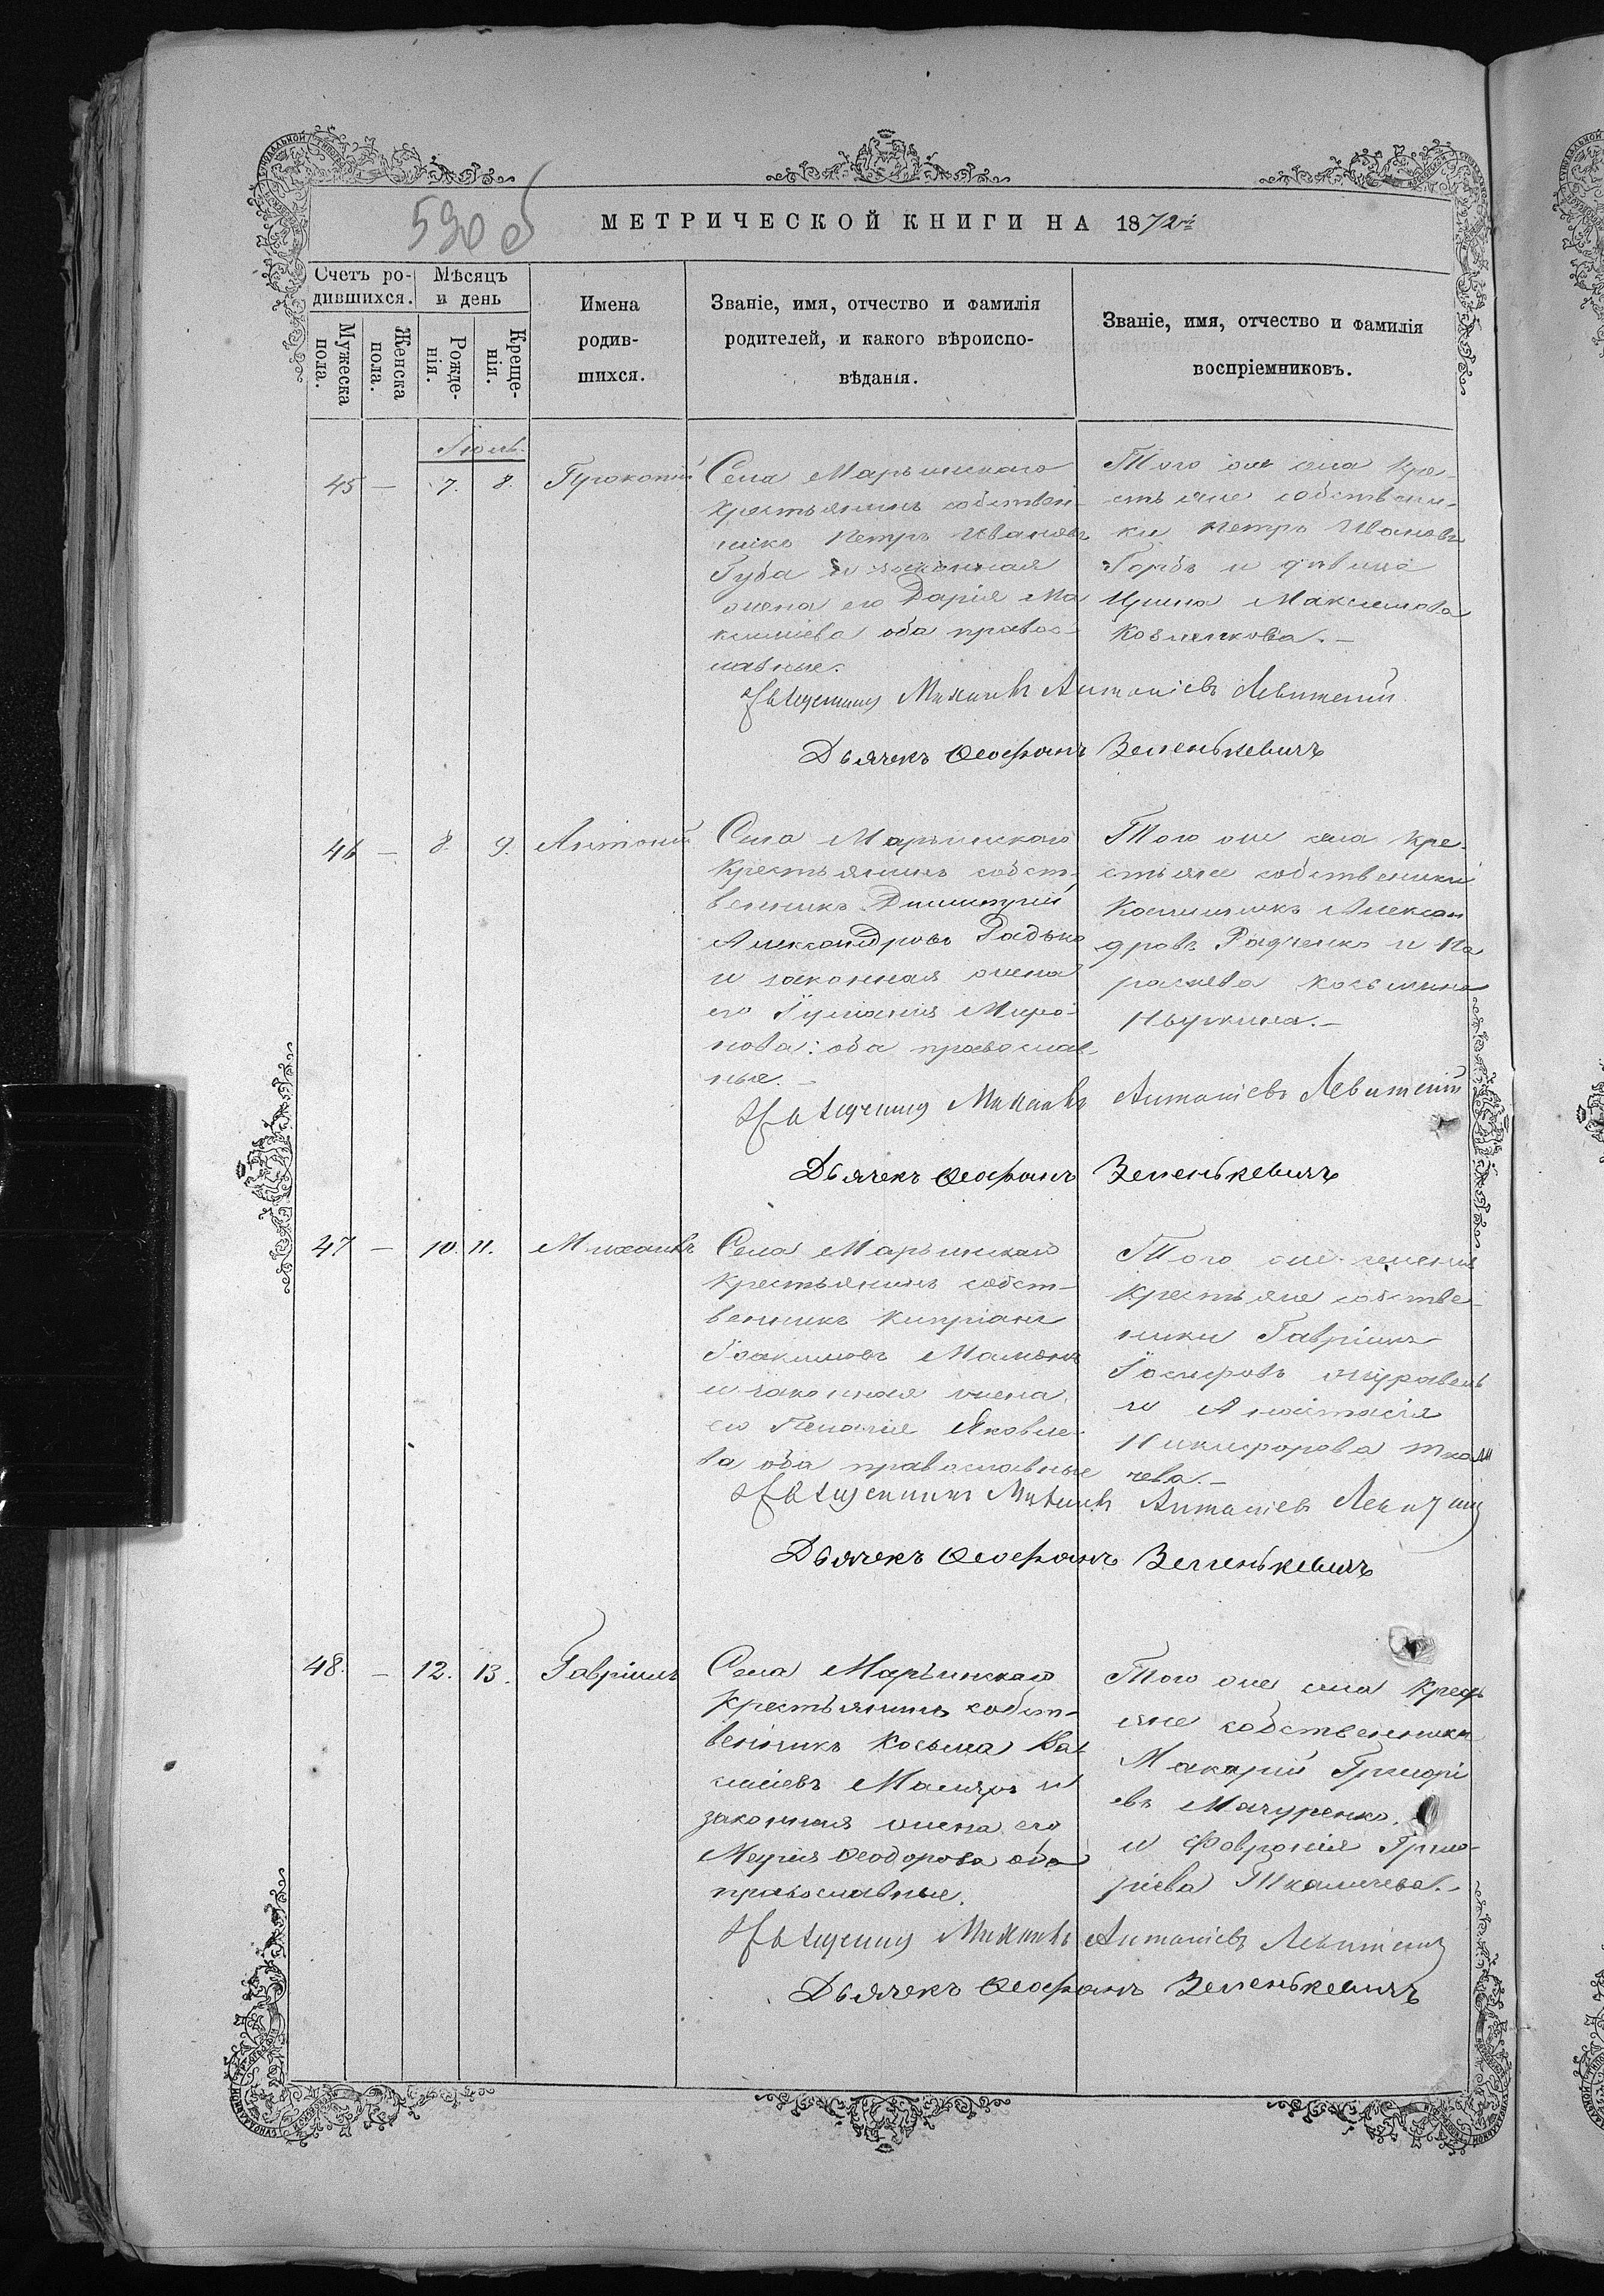 590 об
МЕТРИЧЕСКОЙ КНИГИ НА 1872й
Счетъ ро-
дившихся.
Мѣсяцъ
и день
Мужеска
пола.
Женска
пола.
Рожде-
нія.
Креще-
нія.
Имена
родив-
шихся.
Званіе, имя, отчество и фамилія
родителей, и какого вѣроиспо-
вѣданія.
Званіе, имя, отчество и фамилія
воспріемниковъ.
Іюль.
45 — 7. 8. Прокопій
Села Марьинскаго
крестьянинъ собствен-
никъ Петръ Ивановъ
Губа и законная
жена его Дарія Ма
ксимова оба правос-
лавные.
Того же села кре-
стьяне собственни-
ки Петръ Ивановъ
Горбъ и дѣвица
Ирина Максимова
—
Священникъ Михаилъ Антоніевъ Левитскій
Дьячекъ Ѳеофанъ Зеленькевичъ
46 — 8. 9. Антоній
Села Марьинскаго
крестьянинъ собст-
венникъ Димитрій
Александровъ Радько
и законная жена
его Іуліанія Миро-
нова: оба православ-
ные. —
Того же села кре-
стьяне собственники
Алексан
дровъ Радченко и Па
раскева Косьмина
—
Священникъ Михаилъ Антоніевъ Левитскій
Дьячекъ Ѳеофанъ Зеленькевичъ
47 — 10. 11. Михаилъ
Села Марьинскаго
крестьянинъ собст-
венникъ Кипріанъ
Іоакимовъ
и законная жена
его Пелагія Яковле-
ва оба православные
Того же селенія
крестьяне собстве-
нники Гавріилъ
Іосифовъ Журавель
и Анастасія
Никифорова Ткали
чева. —
Священникъ Михаилъ Антоніевъ Левитскій
Дьячекъ Ѳеофанъ Зеленькевичъ
48. — 12. 13. Гавріилъ
Села Марьинскаго
крестьянинъ собст-
венникъ Косьма Ва
силіевъ Маляръ и
законная жена его
Марія Ѳеодорова оба
православные.
Того же села кресть
яне собственники
Макарій Григорі
евъ Мачуренко.
и Февронія Григо-
ріева Ткаличева. —
Священникъ Михаилъ Антоніевъ Левитскій
Дьячекъ Ѳеофанъ Зеленькевичъ